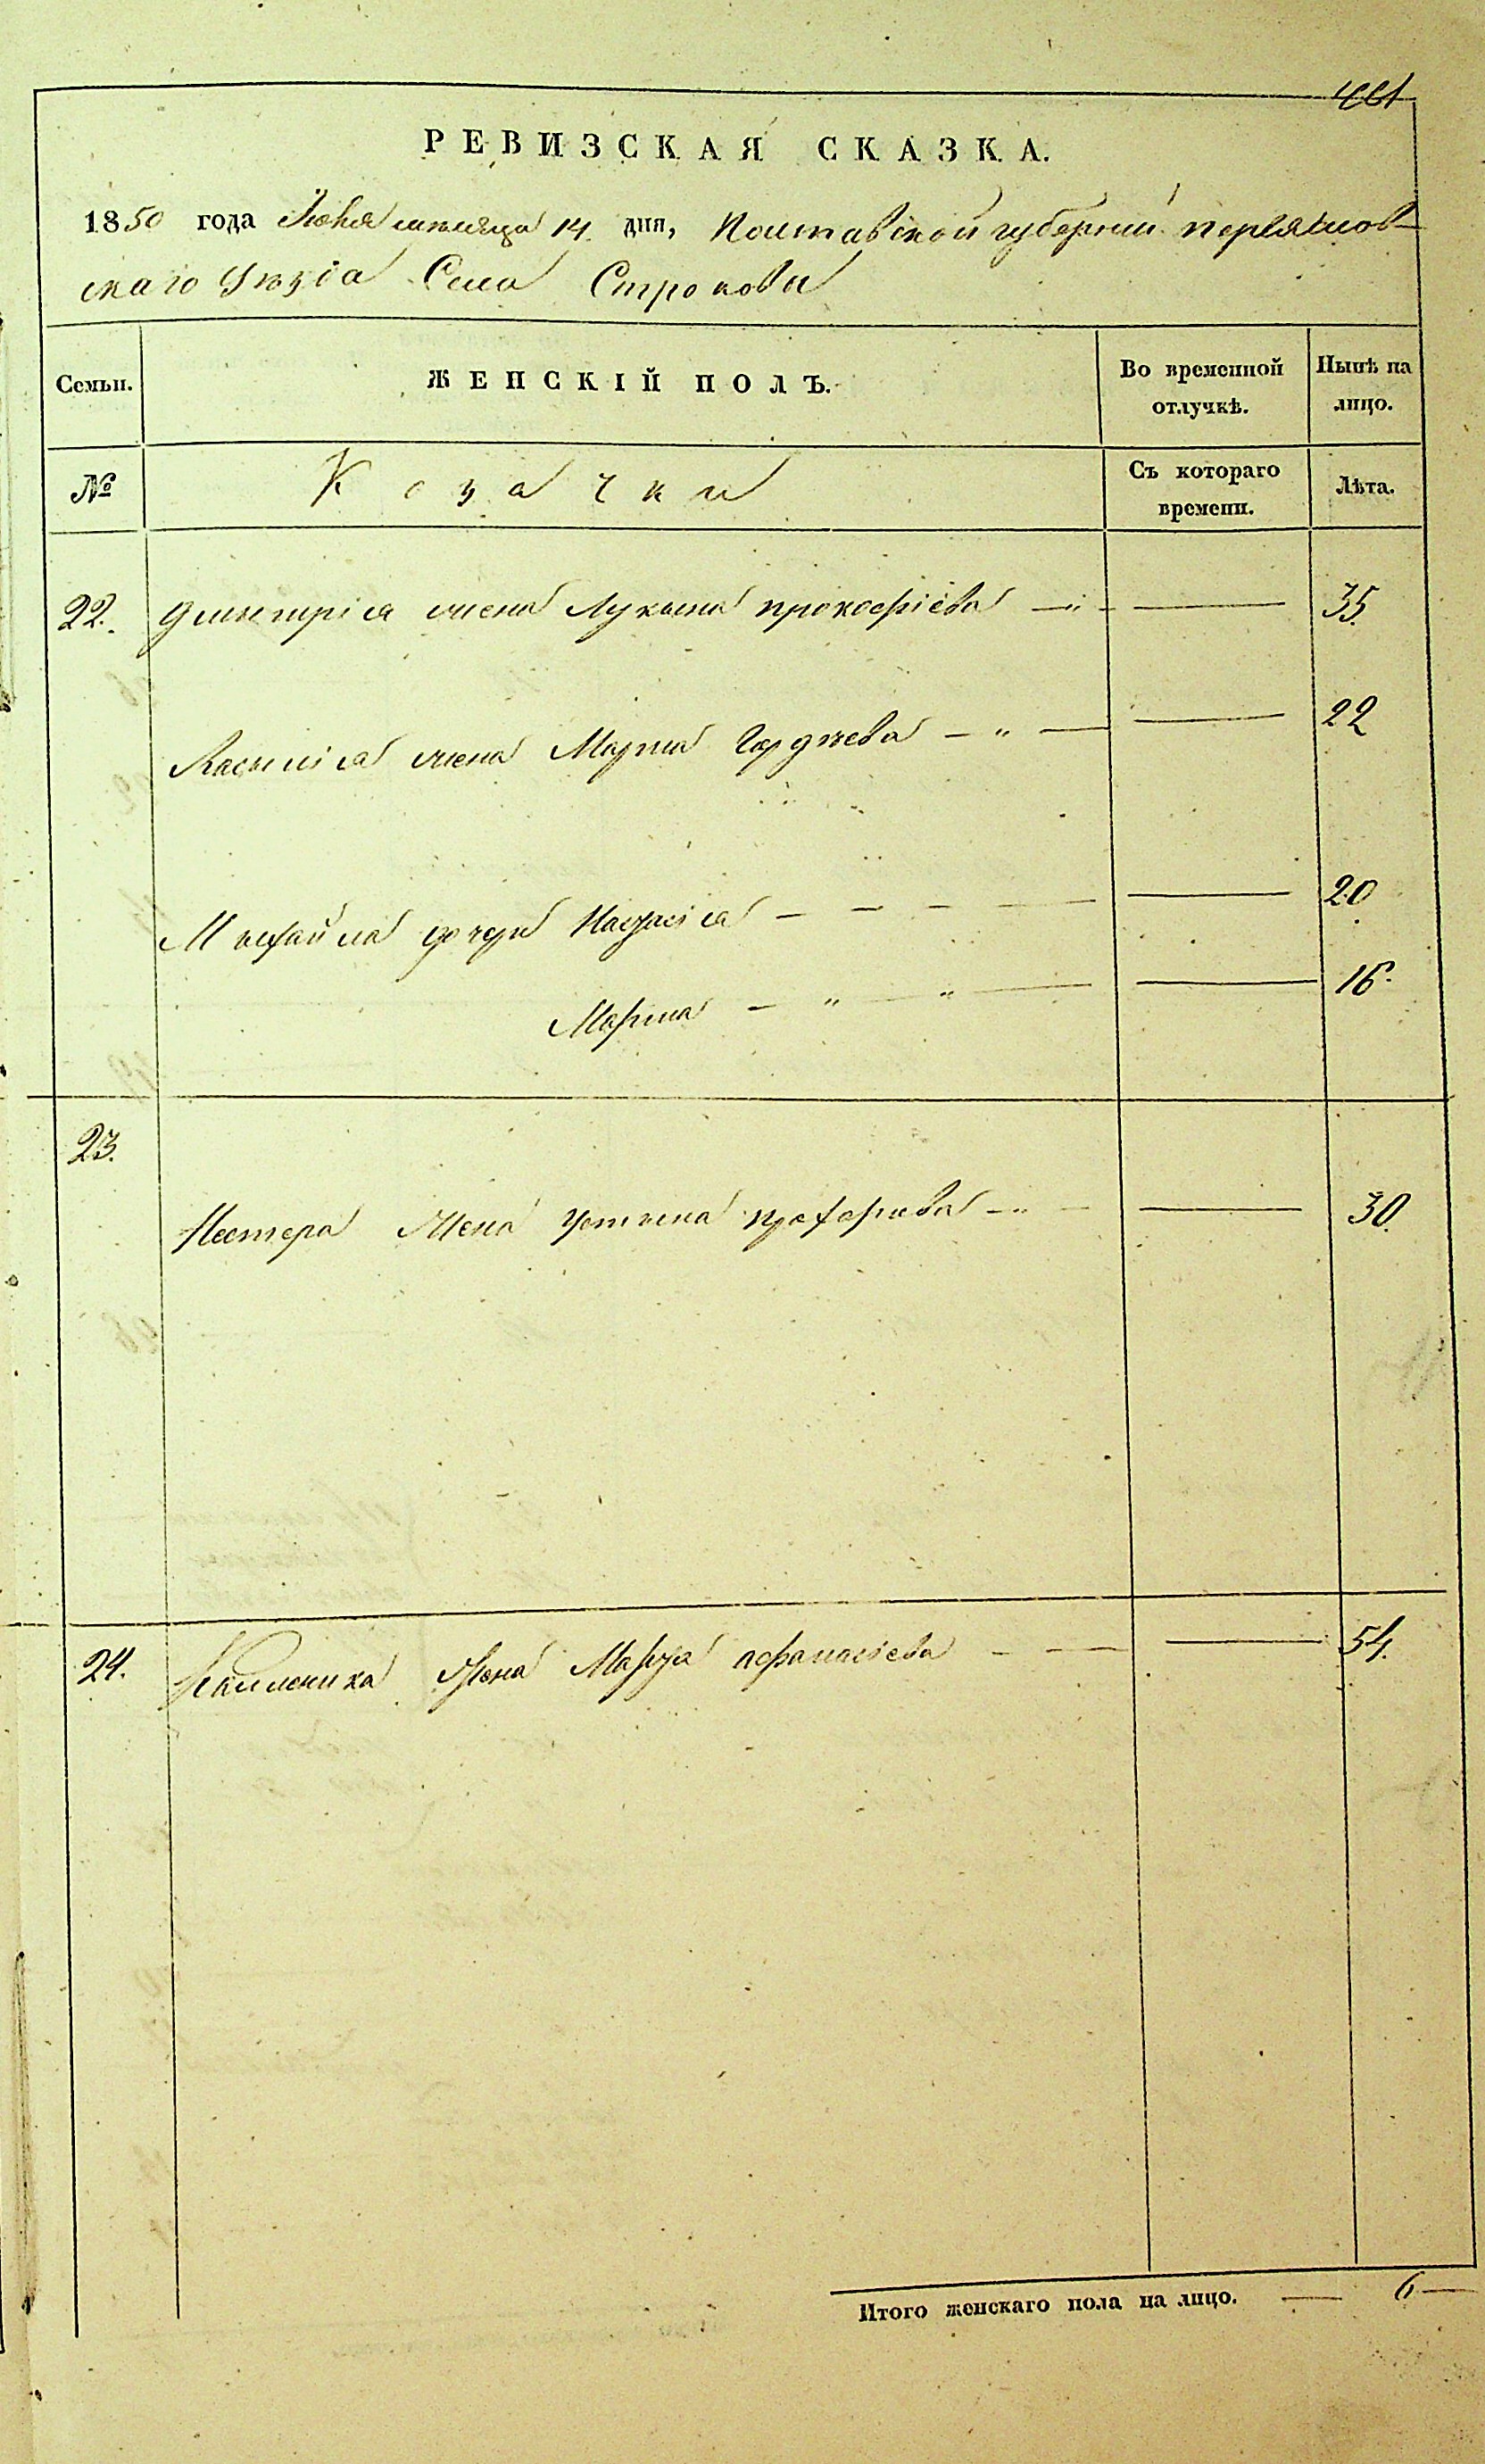 461
РЕВИЗСКАЯ СКАЗКА.
1850 года Июня мѣсяца 14. дня, Полтавской губерній пирятинов-
скаго уѣзда Села Строковы
Семьи. ЖЕНСКІЙ ПОЛЪ. Во временной отлучкѣ. Нынѣ на лицо.
№ Козачки Съ котораго времени. Лѣта.
22. Дмитрія жена Лукына прокофіева — 35.
Василія жена Марина Гордѣева — 22
Михайла дочери Настасія — 20
Марина — 16.
23.
Нестера Жена Устина — 30.
24. Жена Марфа афанасіева — 54.
Итого женскаго пола на лицо. — 6 —